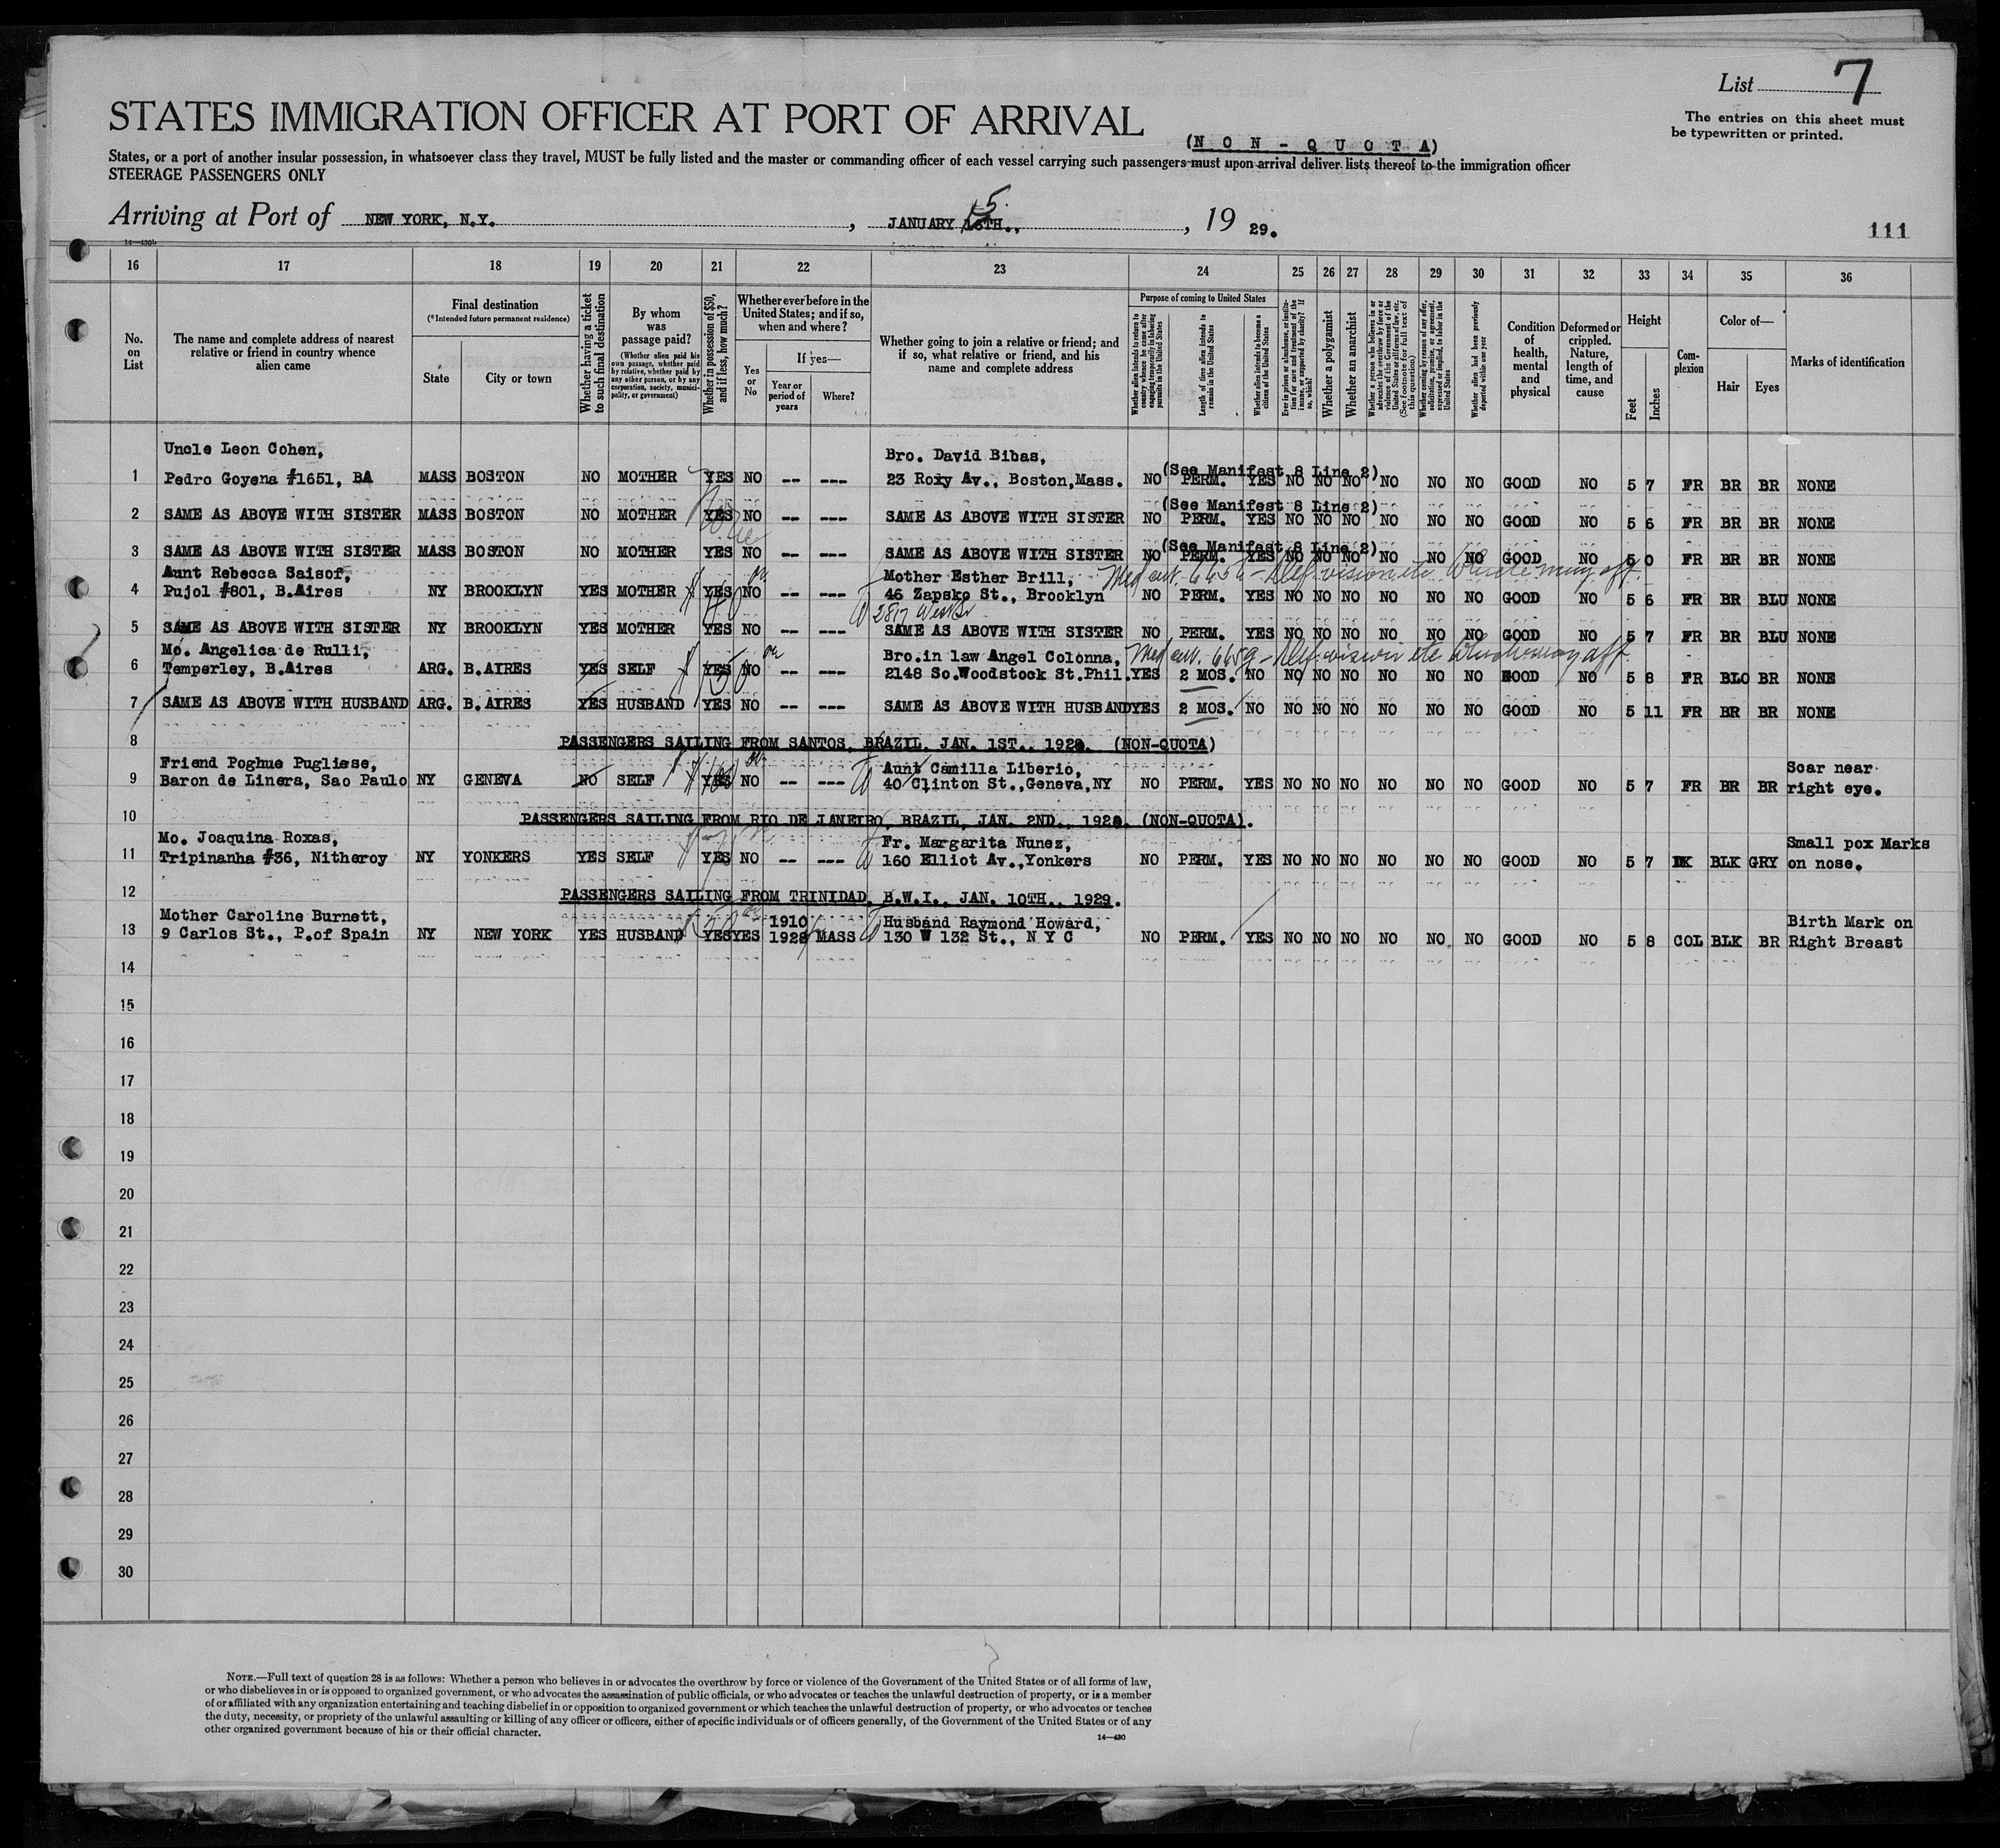 List 7
The entries on this sheet must
be typewritten or printed.
STATES IMMIGRATION OFFICER AT PORT OF ARRIVAL
(NON-QUOTA)
States, or a port of another insular possession, in whatsoever class they travel, MUST be fully listed and the master or commanding officer of each vessel carrying such passengers must upon arrival deliver lists thereof to the immigration officer
STEERAGE PASSENGERS ONLY
Arriving at Port of NEW YORK, N.Y. , JANUARY 15 TH., , 19 29.
111
14—430b
16 17 18 19 20 21 22 23 24 25 26 27 28 29 30 31 32 33 34 35 36
No. on List
The name and complete address of nearest relative or friend in country whence alien came
Final destination
(*Intended future permanent residence)
State
City or town
Whether having a ticket to such final destination
By whom was passage paid?
(Whether alien paid his own passage, whether paid by relative, whether paid by any other person, or by any corporation, society, municipality, or government)
Whether in possession of $50, and if less, how much?
Whether ever before in the United States; and if so, when and where?
Yes or No
If yes—
Year or period of years
Where?
Whether going to join a relative or friend; and if so, what relative or friend, and his name and complete address
Purpose of coming to United States
Whether alien intends to return to country whence he came after engaging temporarily in laboring pursuits in the United States
Length of time alien intends to remain in the United States
Whether alien intends to become a citizen of the United States
Ever in prison or almshouse, or institution for care and treatment of the insane, or supported by charity? If so, which?
Whether a polygamist
Whether an anarchist
Whether a person who believes in or advocates the overthrow by force or violence of the Government of the United States or all forms of law, etc. (See footnote for full text of this question)
Whether coming by reason of any offer, solicitation, promise, or agreement, expressed or implied, to labor in the United States
Whether alien had been previously deported within one year
Condition of health, mental and physical
Deformed or crippled. Nature, length of time, and cause
Height
Feet
Inches
Complexion
Color of—
Hair
Eyes
Marks of identification
Uncle Leon Cohen, Bro. David Bibas, (See Manifest 8 Line 2)
1 Pedro Goyena #1651, BA MASS BOSTON NO MOTHER YES NO -- --- 23 Roxy Av., Boston,Mass. NO PERM. YES NO NO NO NO NO NO GOOD NO 5 7 FR BR BR NONE
(See Manifest 8 Line 2)
2 SAME AS ABOVE WITH SISTER MASS BOSTON NO MOTHER YES NO -- --- SAME AS ABOVE WITH SISTER NO PERM. YES NO NO NO NO NO NO GOOD NO 5 6 FR BR BR NONE
(See Manifest 8 Line 2)
3 SAME AS ABOVE WITH SISTER MASS BOSTON NO MOTHER YES NO -- --- SAME AS ABOVE WITH SISTER NO PERM. YES NO NO NO NO NO NO GOOD NO 5 0 FR BR BR NONE
Aunt Rebecca Saisof, Mother Esther Brill,
4 Pujol #801, B.Aires NY BROOKLYN YES MOTHER YES NO -- --- 46 Zapsko St., Brooklyn NO PERM. YES NO NO NO NO NO NO GOOD NO 5 6 FR BR BLU NONE
5 SAME AS ABOVE WITH SISTER NY BROOKLYN YES MOTHER YES NO -- --- SAME AS ABOVE WITH SISTER NO PERM. YES NO NO NO NO NO NO GOOD NO 5 7 FR BR BLU NONE
Mo. Angelica de Rulli, Bro.in law Angel Colonna,
6 Temperley, B.Aires ARG. B.AIRES YES SELF YES NO -- --- 2148 So.Woodstock St.Phil. YES 2 MOS. NO NO NO NO NO NO NO GOOD NO 5 8 FR BLO BR NONE
7 SAME AS ABOVE WITH HUSBAND ARG. B.AIRES YES HUSBAND YES NO -- --- SAME AS ABOVE WITH HUSBAND YES 2 MOS. NO NO NO NO NO NO NO GOOD NO 5 11 FR BR BR NONE
8 PASSENGERS SAILING FROM SANTOS, BRAZIL, JAN. 1ST., 1929. (NON-QUOTA)
Friend Poghue Pugliese, Aunt Camilla Liberio, Scar near
9 Baron de Linera, Sao Paulo NY GENEVA NO SELF YES NO -- --- 40 Clinton St.,Geneva,NY NO PERM. YES NO NO NO NO NO NO GOOD NO 5 7 FR BR BR right eye.
10 PASSENGERS SAILING FROM RIO DE JANEIRO, BRAZIL, JAN. 2ND., 1929. (NON-QUOTA).
Mo. Joaquina Roxas, Fr. Margarita Nunez, Small pox Marks
11 Tripinanha #36, Nitheroy NY YONKERS YES SELF YES NO -- --- 160 Elliot Av.,Yonkers NO PERM. YES NO NO NO NO NO NO GOOD NO 5 7 DK BLK GRY on nose.
12 PASSENGERS SAILING FROM TRINIDAD, B.W.I., JAN. 10TH., 1929.
Mother Caroline Burnett, 1910 Husband Raymond Howard, Birth Mark on
13 9 Carlos St., P.of Spain NY NEW YORK YES HUSBAND YES YES 1928 MASS 130 W 132 St., N Y C NO PERM. YES NO NO NO NO NO NO GOOD NO 5 8 COL BLK BR Right Breast
14
15
16
17
18
19
20
21
22
23
24
25
26
27
28
29
30
NOTE.—Full text of question 28 is as follows: Whether a person who believes in or advocates the overthrow by force or violence of the Government of the United States or of all forms of law,
or who disbelieves in or is opposed to organized government, or who advocates the assassination of public officials, or who advocates or teaches the unlawful destruction of property, or is a member
of or affiliated with any organization entertaining and teaching disbelief in or opposition to organized government or which teaches the unlawful destruction of property, or who advocates or teaches
the duty, necessity, or propriety of the unlawful assaulting or killing of any officer or officers, either of specific individuals or of officers generally, of the Government of the United States or of any
other organized government because of his or their official character.
14—430